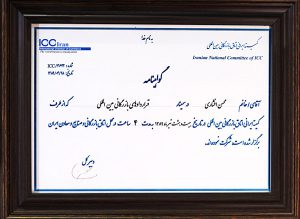 بنام خدا
ICC Iran
کمیته ایرانی اتاق بازرگانی بین‌المللی
Iranian National Committee of ICC
شماره: ICC/
تاریخ:
گواهینامه
آقای / خانم محسن افشاری در سمینار قراردادهای بازرگانی بین المللی که از طرف
کمیته ایرانی اتاق بازرگانی بین المللی در تاریخ بیست و هشت تیرماه بمدت ۴ ساعت در محل اتاق بازرگانی و صنایع و معادن ایران
برگزار شده است شرکت نموده‌اند.
دبیر کل